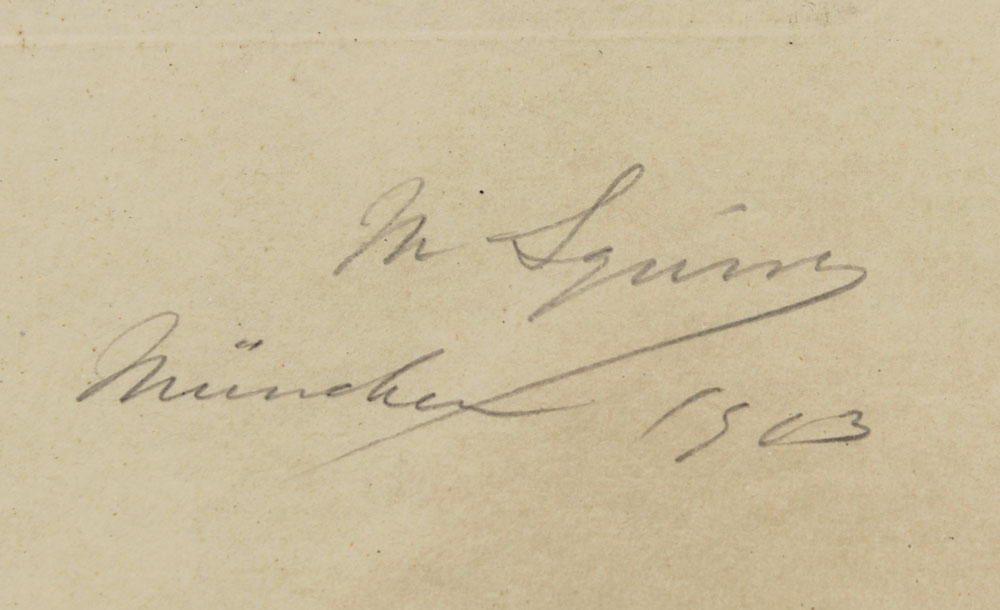 M Squire
München 1903